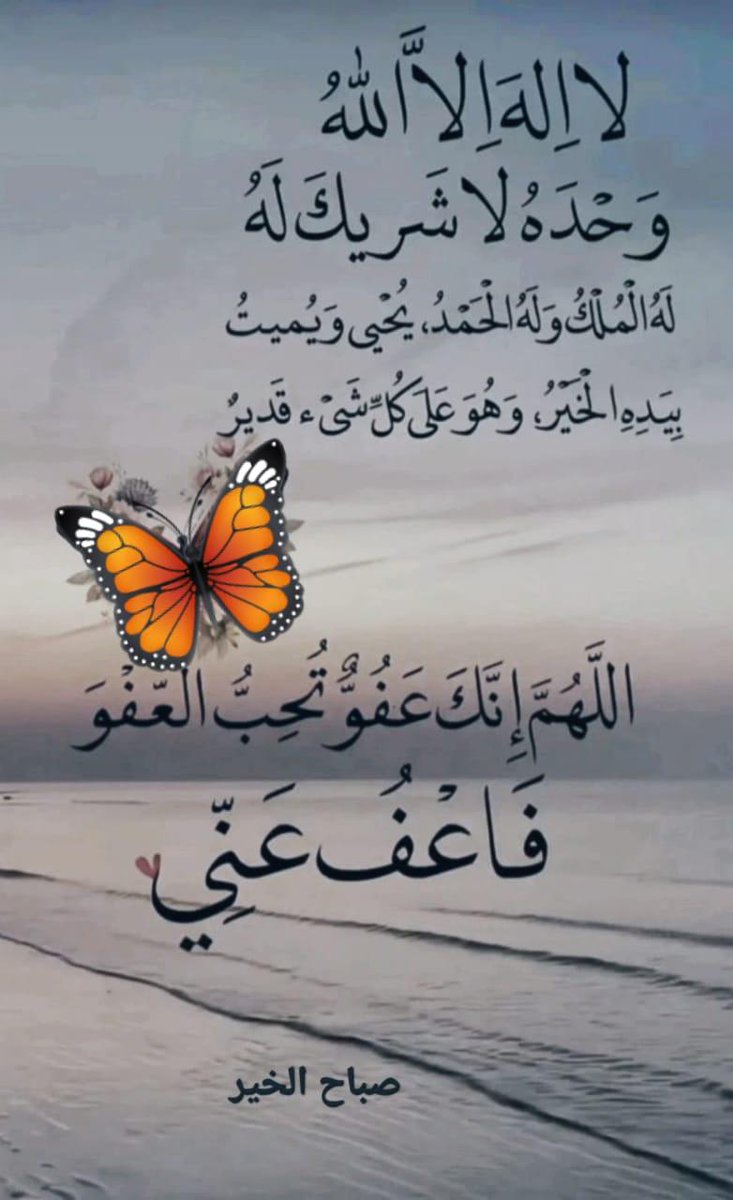 لا اِلهَ اِلاَّ اللهُ
وَحْدَهُ لا شَريكَ لَهُ
لَهُ الْمُلْكُ وَلَهُ الْحَمْدُ، يُحْيى وَيُميتُ
بِيَدِهِ الْخَيْرُ، وَهُوَ عَلَى كُلِّ شَىْء قَديرٌ
اللَّهُمَّ إِنَّكَ عَفُوٌّ تُحِبُّ العّفْوَ
فَاعْفُ عَنِّي
صباح الخير